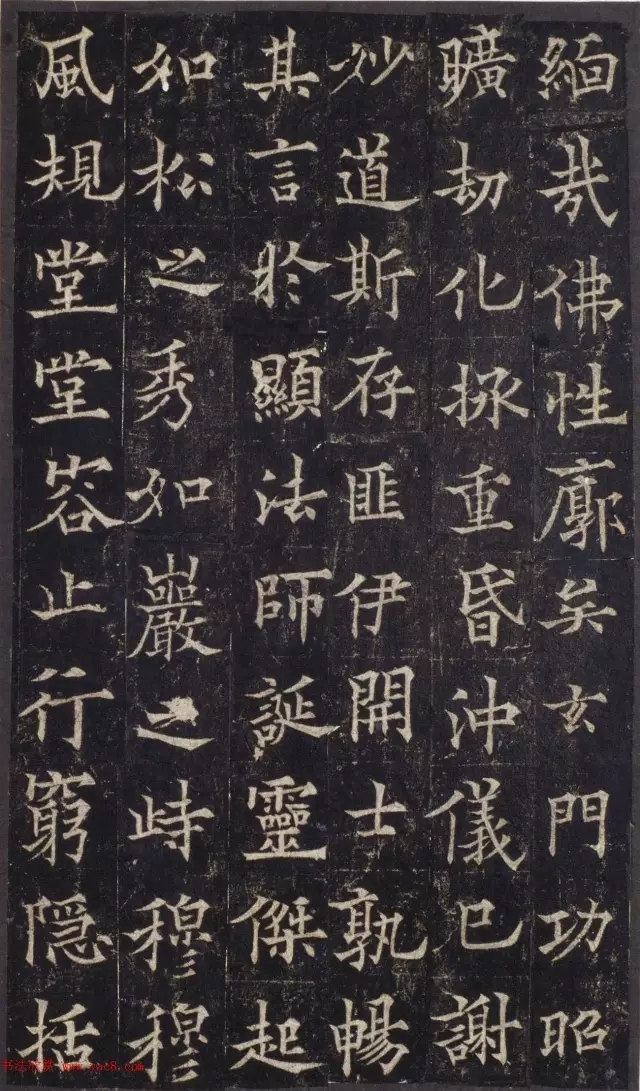 緬哉佛性廓矣玄門功昭
曠劫化拯重昏沖儀已謝
妙道斯存匪伊開士孰暢
其言於顯法師誕靈傑起
如松之秀如巖之峙穆〻穆〻
風規堂堂容止行窮隠括